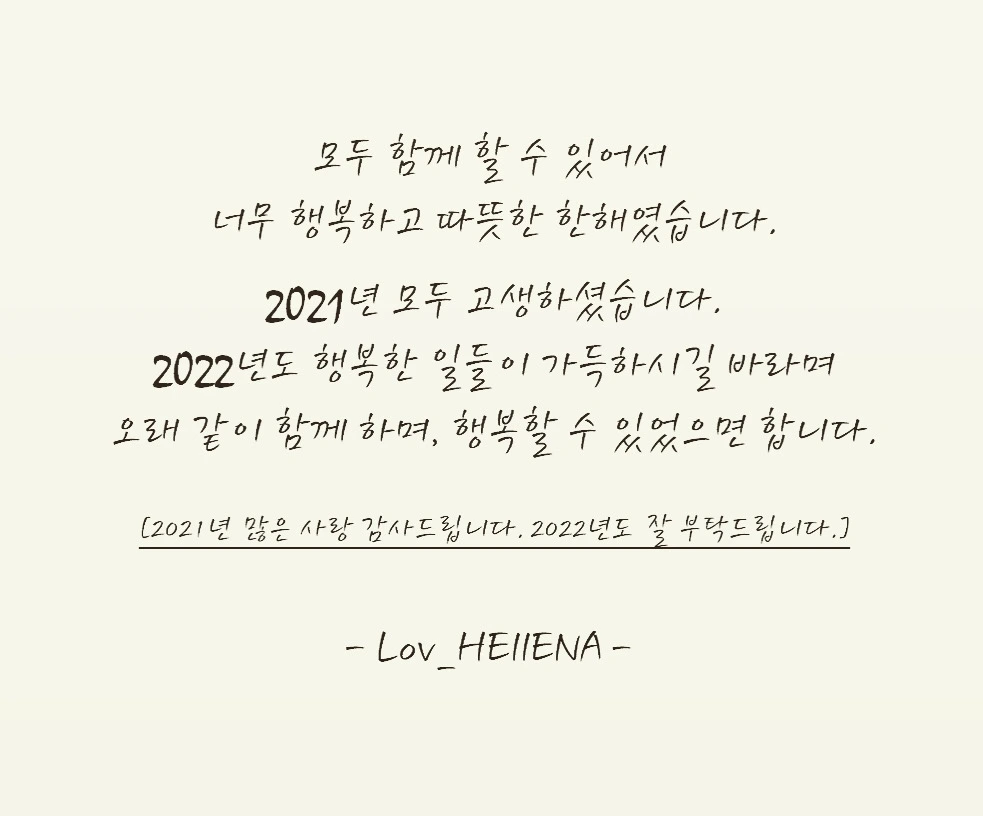 모두 함께 할 수 있어서
너무 행복하고 따뜻한 한해였습니다.
2021년 모두 고생하셨습니다.
2022년도 행복한 일들이 가득하시길 바라며
오래 같이 함께 하며, 행복할 수 있었으면 합니다.
[2021년 많은 사랑 감사드립니다. 2022년도 잘 부탁드립니다.]
- Lov_HEllENA -